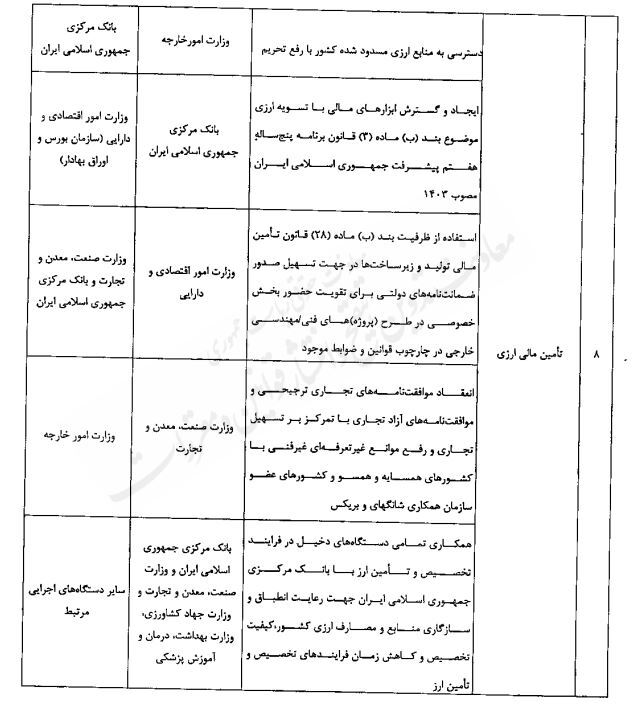 ۸
تأمین مالی ارزی
دسترسی به منابع ارزی مسدود شده کشور با رفع تحریم
وزارت امورخارجه
بانک مرکزی
جمهوری اسلامی ایران
ایجاد و گسترش ابزارهای مالی با تسویه ارزی
موضوع بند (ب) ماده (۳) قانون برنامه پنج‌ساله
هفتم پیشرفت جمهوری اسلامی ایران
مصوب ۱۴۰۳
بانک مرکزی
جمهوری اسلامی ایران
وزارت امور اقتصادی و
دارایی (سازمان بورس و
اوراق بهادار)
استفاده از ظرفیت بند (ب) ماده (۲۸) قانون تأمین
مالی تولید و زیرساخت‌ها در جهت تسهیل صدور
ضمانت‌نامه‌های دولتی برای تقویت حضور بخش
خصوصی در طرح (پروژه)های فنی/مهندسی
خارجی در چارچوب قوانین و ضوابط موجود
وزارت امور اقتصادی و
دارایی
وزارت صنعت، معدن و
تجارت و بانک مرکزی
جمهوری اسلامی ایران
انعقاد موافقت‌نامه‌های تجاری ترجیحی و
موافقت‌نامه‌های آزاد تجاری با تمرکز بر تسهیل
تجاری و رفع موانع غیرتعرفه‌ای غیرفنی با
کشورهای همسایه و همسو و کشورهای عضو
سازمان همکاری شانگهای و بریکس
وزارت صنعت، معدن و
تجارت
وزارت امور خارجه
همکاری تمامی دستگاه‌های دخیل در فرایند
تخصیص و تأمین ارز با بانک مرکزی
جمهوری اسلامی ایران جهت رعایت انطباق و
سازگاری منابع و مصارف ارزی کشور،کیفیت
تخصیص و کاهش زمان فرایندهای تخصیص و
تأمین ارز
بانک مرکزی جمهوری
اسلامی ایران و وزارت
صنعت، معدن و تجارت و
وزارت جهاد کشاورزی،
وزارت بهداشت، درمان و
آموزش پزشکی
سایر دستگاه‌های اجرایی
مرتبط